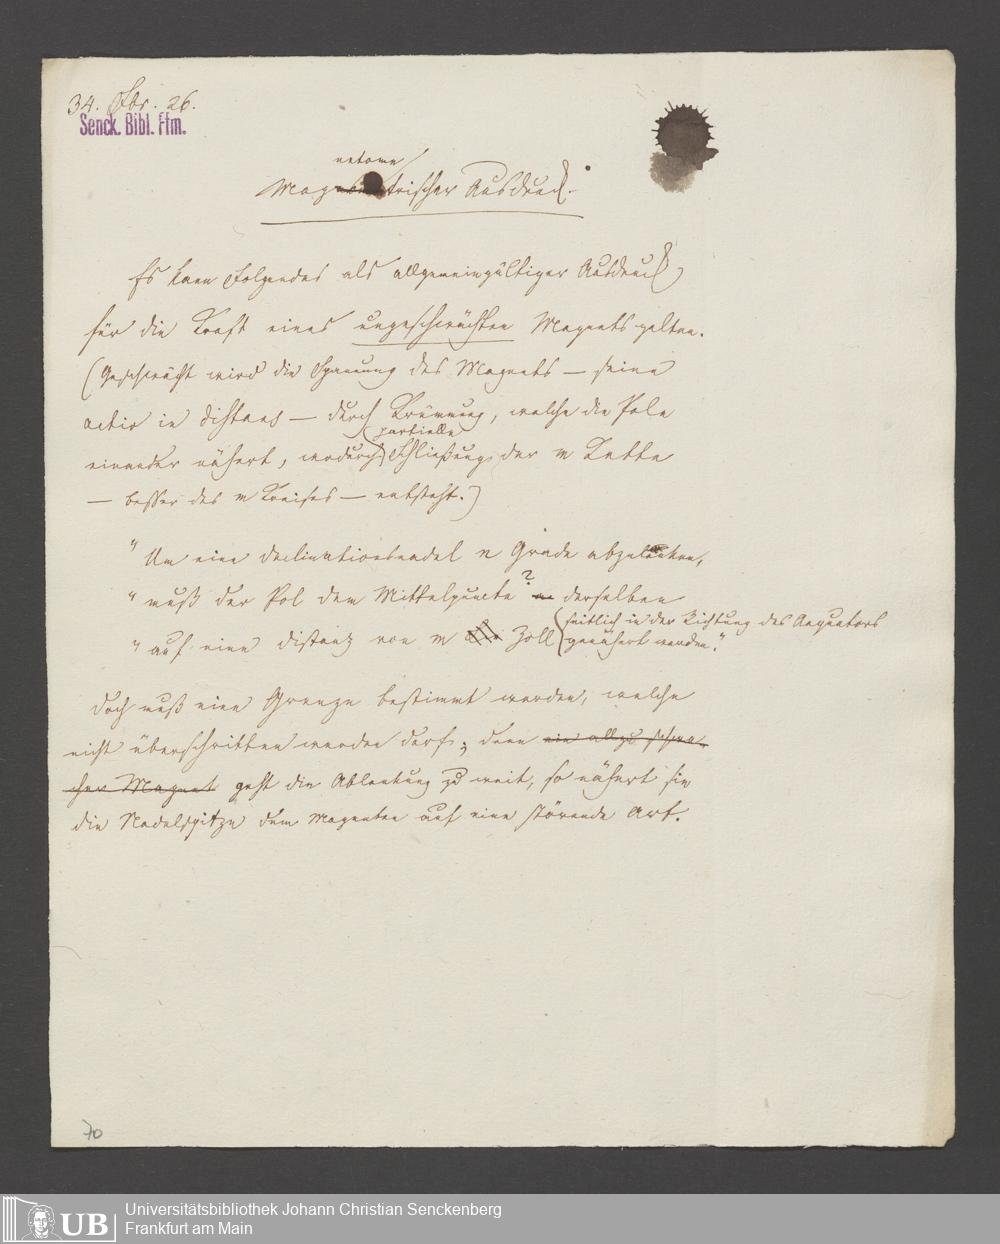 34. Fbr. 26.
Senck. Bibl. Ffm.
netome
Magnetrischer Ausdruck.
Es kann Folgendes als allgemeingültiger Ausdruck
für die Kraft eines ungeschwächten Magnets gelten.
(Geschwächt wird die Spannung des Magnets — seine
actio in distans — durch Krümmung, welche die Pole
partielle
einander nähert, wodurch Schließung der m Kette
— besser des m Kreises — entsteht.)
" Um eine Declinationsnadel n Grade abzulenken,
" muß der Pol dem Mittelpuncte ? derselben
" auf eine Distanz von m Zoll (seitlich in der Richtung des Aequators
genähert werden."
Doch muß eine Grenze bestimmt werden, welche
nicht überschritten werden darf; denn ein allzu schwa-
cher Magnet geht die Ablenkung zu weit, so nähert sie
die Nadelspitze dem Magneten auf eine störende Art.
70
UB
Universitätsbibliothek Johann Christian Senckenberg
Frankfurt am Main